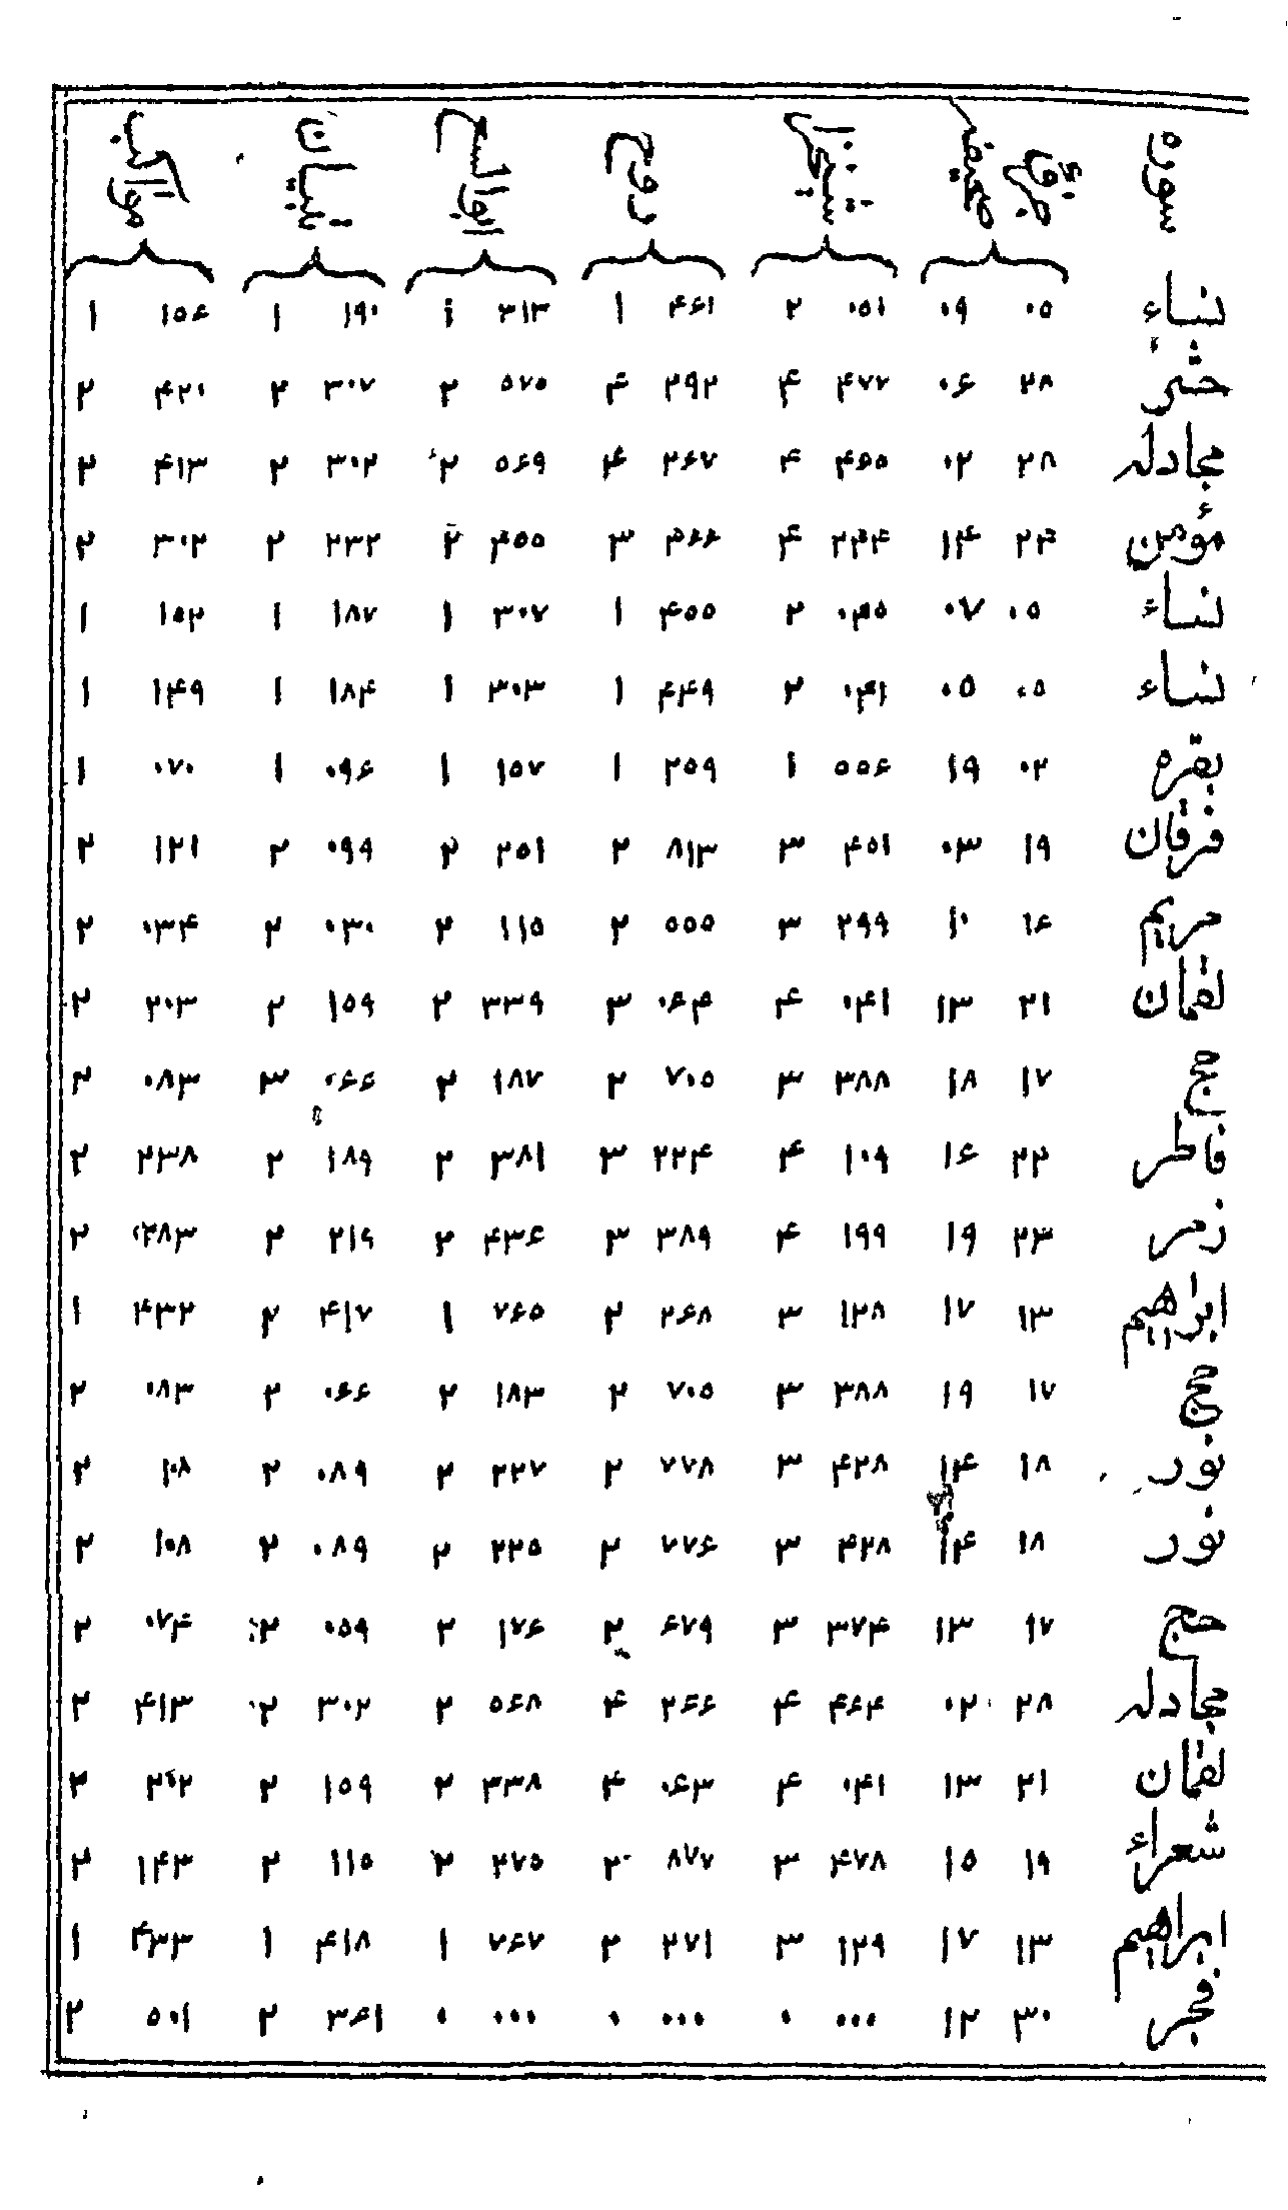 سوره جزؤ صحیفه شیخزاده روح ابو السعود تبیان مواکب
نساء ۰۵ ۰۹ ۰۵۱ ۲ ۴۶۱ ۱ ۳۱۳ ۱ ۱۹۰ ۱ ۱۵۶ ۱
حشر ۲۸ ۰۶ ۴۷۲ ۴ ۲۹۲ ۴ ۵۷۵ ۲ ۳۰۷ ۲ ۴۲۰ ۲
مجادله ۲۸ ۰۲ ۴۶۵ ۴ ۲۶۷ ۴ ۵۶۹ ۲ ۳۰۲ ۲ ۴۱۳ ۲
مؤمن ۲۴ ۱۴ ۲۴۴ ۴ ۴۶۶ ۳ ۴۵۵ ۲ ۲۳۲ ۲ ۳۰۲ ۲
نساء ۰۵ ۰۷ ۰۴۵ ۲ ۴۵۵ ۱ ۳۰۷ ۱ ۱۸۷ ۱ ۱۵۲ ۱
نساء ۰۵ ۰۵ ۰۴۱ ۲ ۴۴۹ ۱ ۳۰۳ ۱ ۱۸۴ ۱ ۱۴۹ ۱
بقره ۰۲ ۱۹ ۵۵۶ ۱ ۲۵۹ ۱ ۱۵۷ ۱ ۰۹۶ ۱ ۰۷۰ ۱
فرقان ۱۹ ۰۳ ۴۵۱ ۳ ۸۱۳ ۲ ۲۵۱ ۲ ۰۹۹ ۲ ۱۲۱ ۲
مریم ۱۶ ۱۰ ۲۹۹ ۳ ۵۵۵ ۲ ۱۱۵ ۲ ۰۳۰ ۲ ۰۳۴ ۲
لقمان ۲۱ ۱۳ ۰۴۱ ۴ ۰۶۴ ۳ ۳۳۹ ۲ ۱۵۹ ۲ ۲۰۳ ۲
حج ۱۷ ۱۸ ۳۸۸ ۳ ۷۰۵ ۲ ۱۸۷ ۲ ۰۶۶ ۳ ۰۸۳ ۲
فاطر ۲۲ ۱۶ ۱۰۹ ۴ ۲۲۴ ۳ ۳۸۱ ۲ ۱۸۹ ۲ ۲۳۸ ۲
زمر ۲۳ ۱۹ ۱۹۹ ۴ ۳۸۹ ۳ ۴۳۶ ۲ ۲۱۹ ۲ ۲۸۳ ۲
ابراهیم ۱۳ ۱۷ ۱۲۸ ۳ ۲۶۸ ۲ ۷۶۵ ۱ ۴۱۷ ۲ ۴۳۲ ۱
حج ۱۷ ۱۹ ۳۸۸ ۳ ۷۰۵ ۲ ۱۸۳ ۲ ۰۶۶ ۲ ۰۸۳ ۲
نور ۱۸ ۱۴ ۴۲۸ ۳ ۷۷۸ ۲ ۲۲۷ ۲ ۰۸۹ ۲ ۱۰۸ ۲
نور ۱۸ ۱۴ ۴۲۸ ۳ ۷۷۶ ۲ ۲۲۵ ۲ ۰۸۹ ۲ ۱۰۸ ۲
حج ۱۷ ۱۳ ۳۷۴ ۳ ۶۷۹ ۲ ۱۷۶ ۲ ۰۵۹ ۲ ۰۷۴ ۲
مجادله ۲۸ ۰۲ ۴۶۴ ۴ ۲۶۶ ۴ ۵۶۸ ۲ ۳۰۲ ۲ ۴۱۳ ۲
لقمان ۲۱ ۱۳ ۰۴۱ ۴ ۰۶۳ ۴ ۳۳۸ ۲ ۱۵۹ ۲ ۲۰۲ ۲
شعراء ۱۹ ۱۵ ۴۷۸ ۳ ۸۷۷ ۲ ۲۷۵ ۲ ۱۱۵ ۲ ۱۴۳ ۲
ابراهیم ۱۳ ۱۷ ۱۲۹ ۳ ۲۷۱ ۲ ۷۶۷ ۱ ۴۱۸ ۱ ۴۳۳ ۱
فجر ۳۰ ۱۲ ۰۰۰ ۰ ۰۰۰ ۰ ۰۰۰ ۰ ۳۶۱ ۲ ۵۰۱ ۲